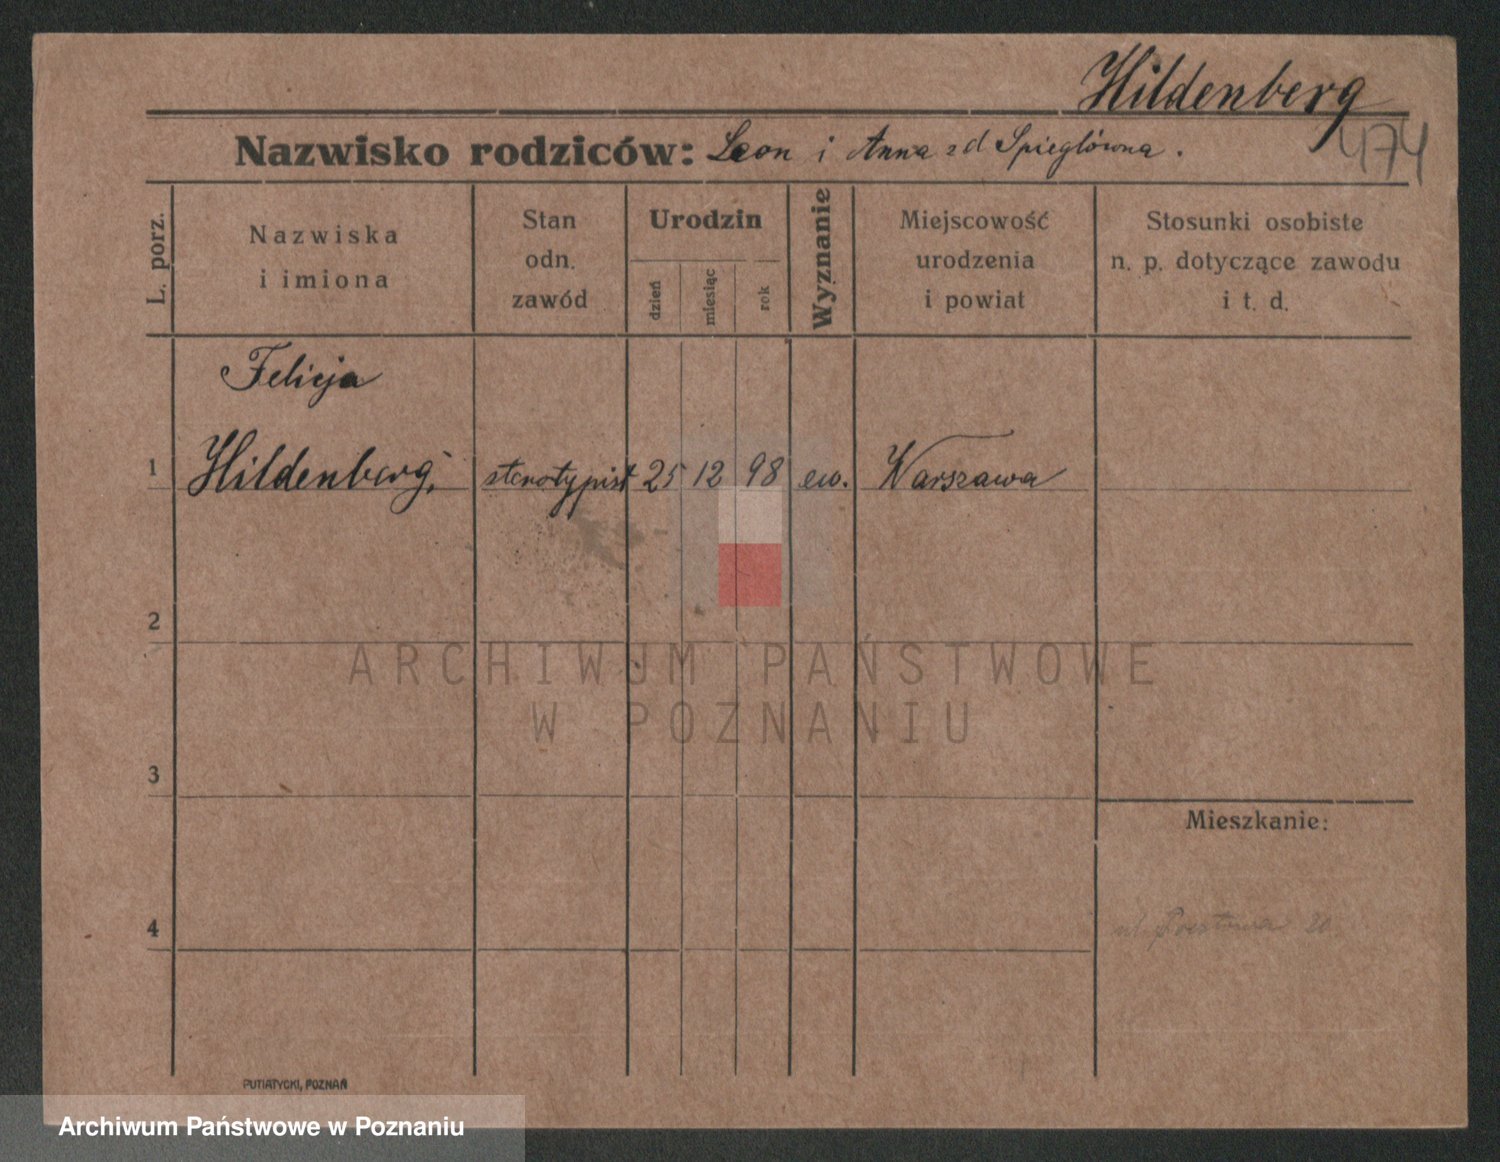 Hildenberg
474
Nazwisko rodziców: Leon i Anna zd Spieglówna.
L. porz.
Nazwiska
i imiona
Stan
odn.
zawód
Urodzin
dzień
miesiąc
rok
Wyznanie
Miejscowość
urodzenia
i powiat
Stosunki osobiste
n. p. dotyczące zawodu
i t. d.
Felicja
1 Hildenberg, stenotypist 25 12 98 ew. Warszawa
2
ARCHIWUM PAŃSTWOWE
W POZNANIU
3
Mieszkanie:
4
ul. Pocztowa 20.
PUTIATYCKI, POZNAŃ
Archiwum Państwowe w Poznaniu